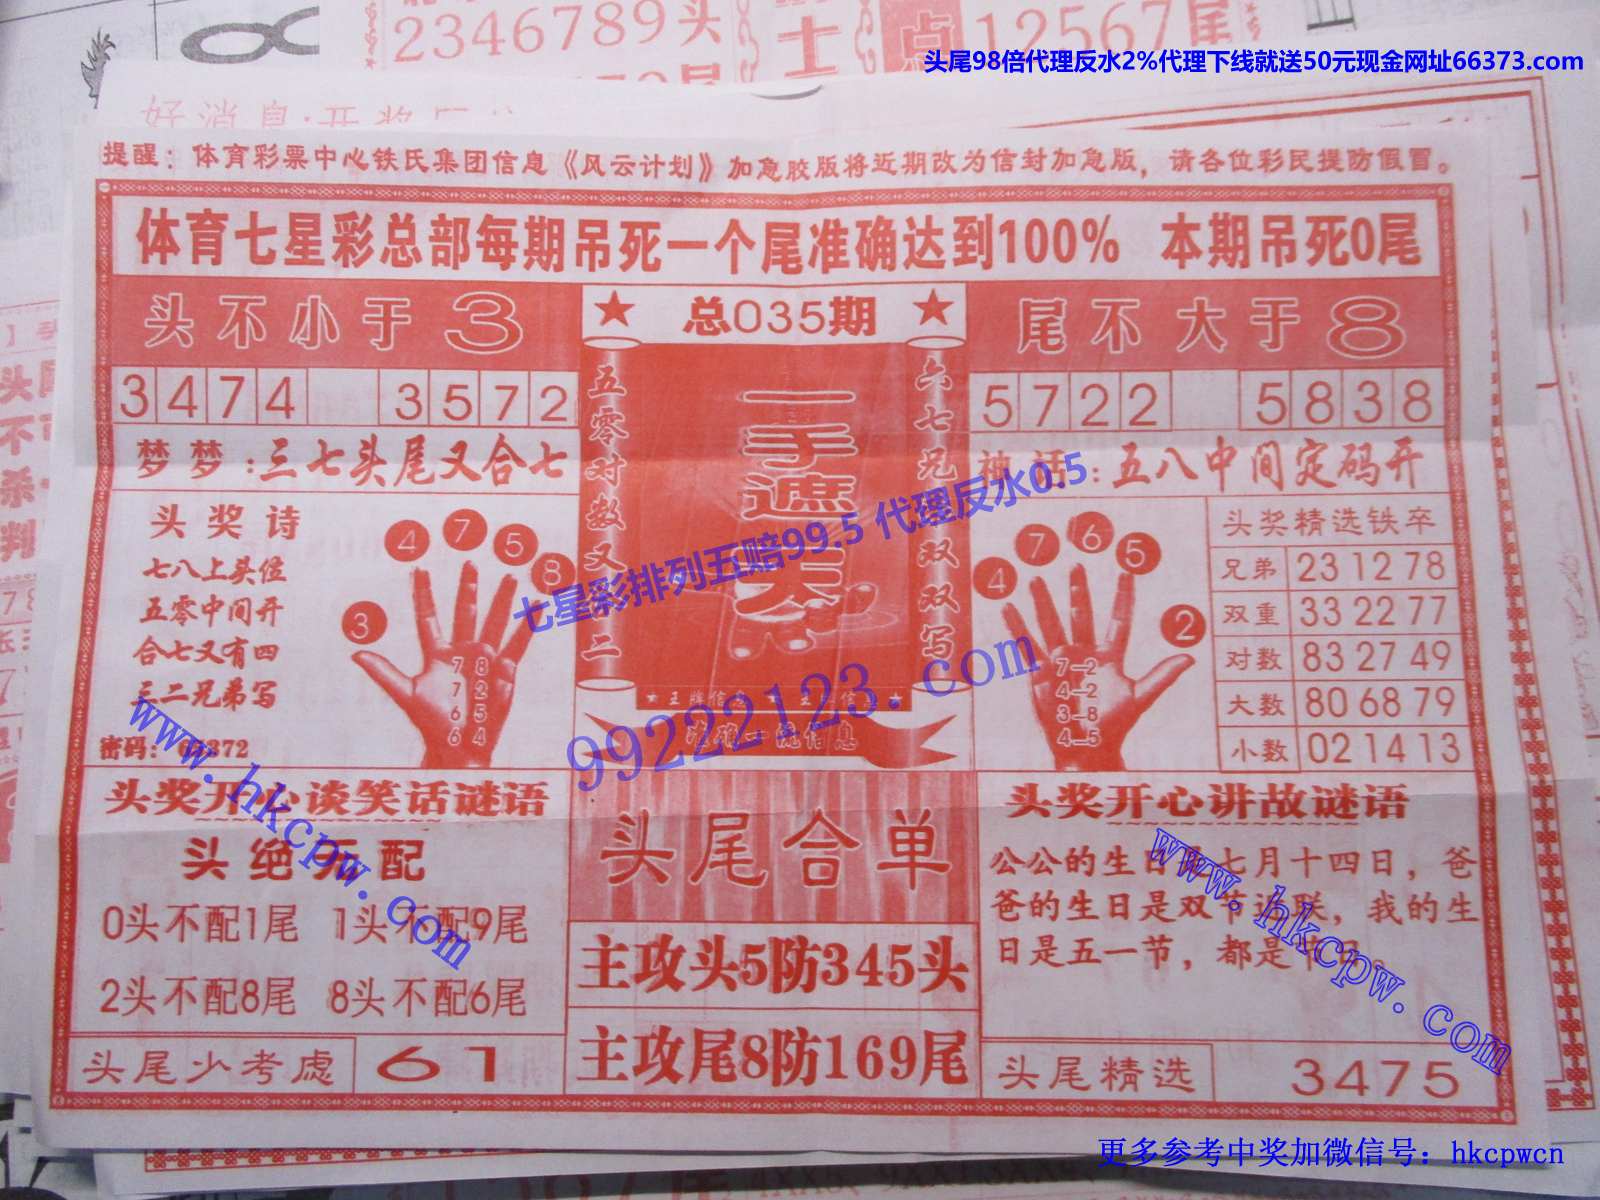 2346789头
士
点
12567尾
头尾98倍代理反水2%代理下线就送50元现金网址66373.com
好消息:开奖
提醒：体育彩票中心铁氏集团信息《风云计划》加急胶版将近期改为信封加急版，请各位彩民提防假冒。
体育七星彩总部每期吊死一个尾准确达到100% 本期吊死0尾
头不小于3
★ 总035期 ★
尾不大于8
3474 3572
5722 5838
梦梦:三七头尾又合七
神话:五八中间定码开
五零对数又二
一手遮天
六七兄双双写
头奖诗
七八上头位
五零中间开
合七又有四
三二兄弟写
密码:
3 4 7 5 8
7 8
7 2
6 5
6 4
4 7 6 5 2
7-2
4-2
3-8
4-5
头奖精选铁卒
兄弟 23 12 78
双重 33 22 77
对数 83 27 49
大数 80 68 79
小数 02 14 13
七星彩排列五赔99.5 代理反水0.5
99222123.com
准确一流信息
头奖开心谈笑话谜语
头绝无配
0头不配1尾 1头不配9尾
2头不配8尾 8头不配6尾
头尾少考虑 61
头尾合单
主攻头5防345头
主攻尾8防169尾
头奖开心讲故谜语
公公的生日是七月十四日，爸
爸的生日是双节
联，我的生
日是五一节，都是
头尾精选 3475
www.hkcpw.com
www.hkcpw.com
更多参考中奖加微信号：hkcpwcn